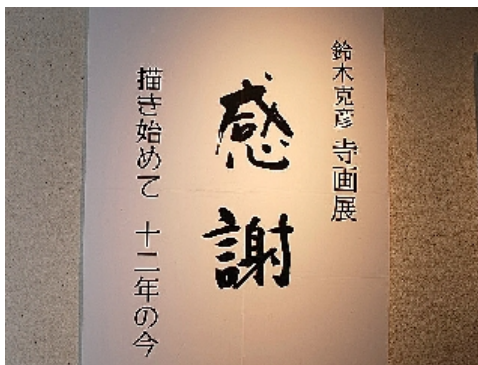 鈴木克彦 寺画展
感謝
描き始めて 十二年の今